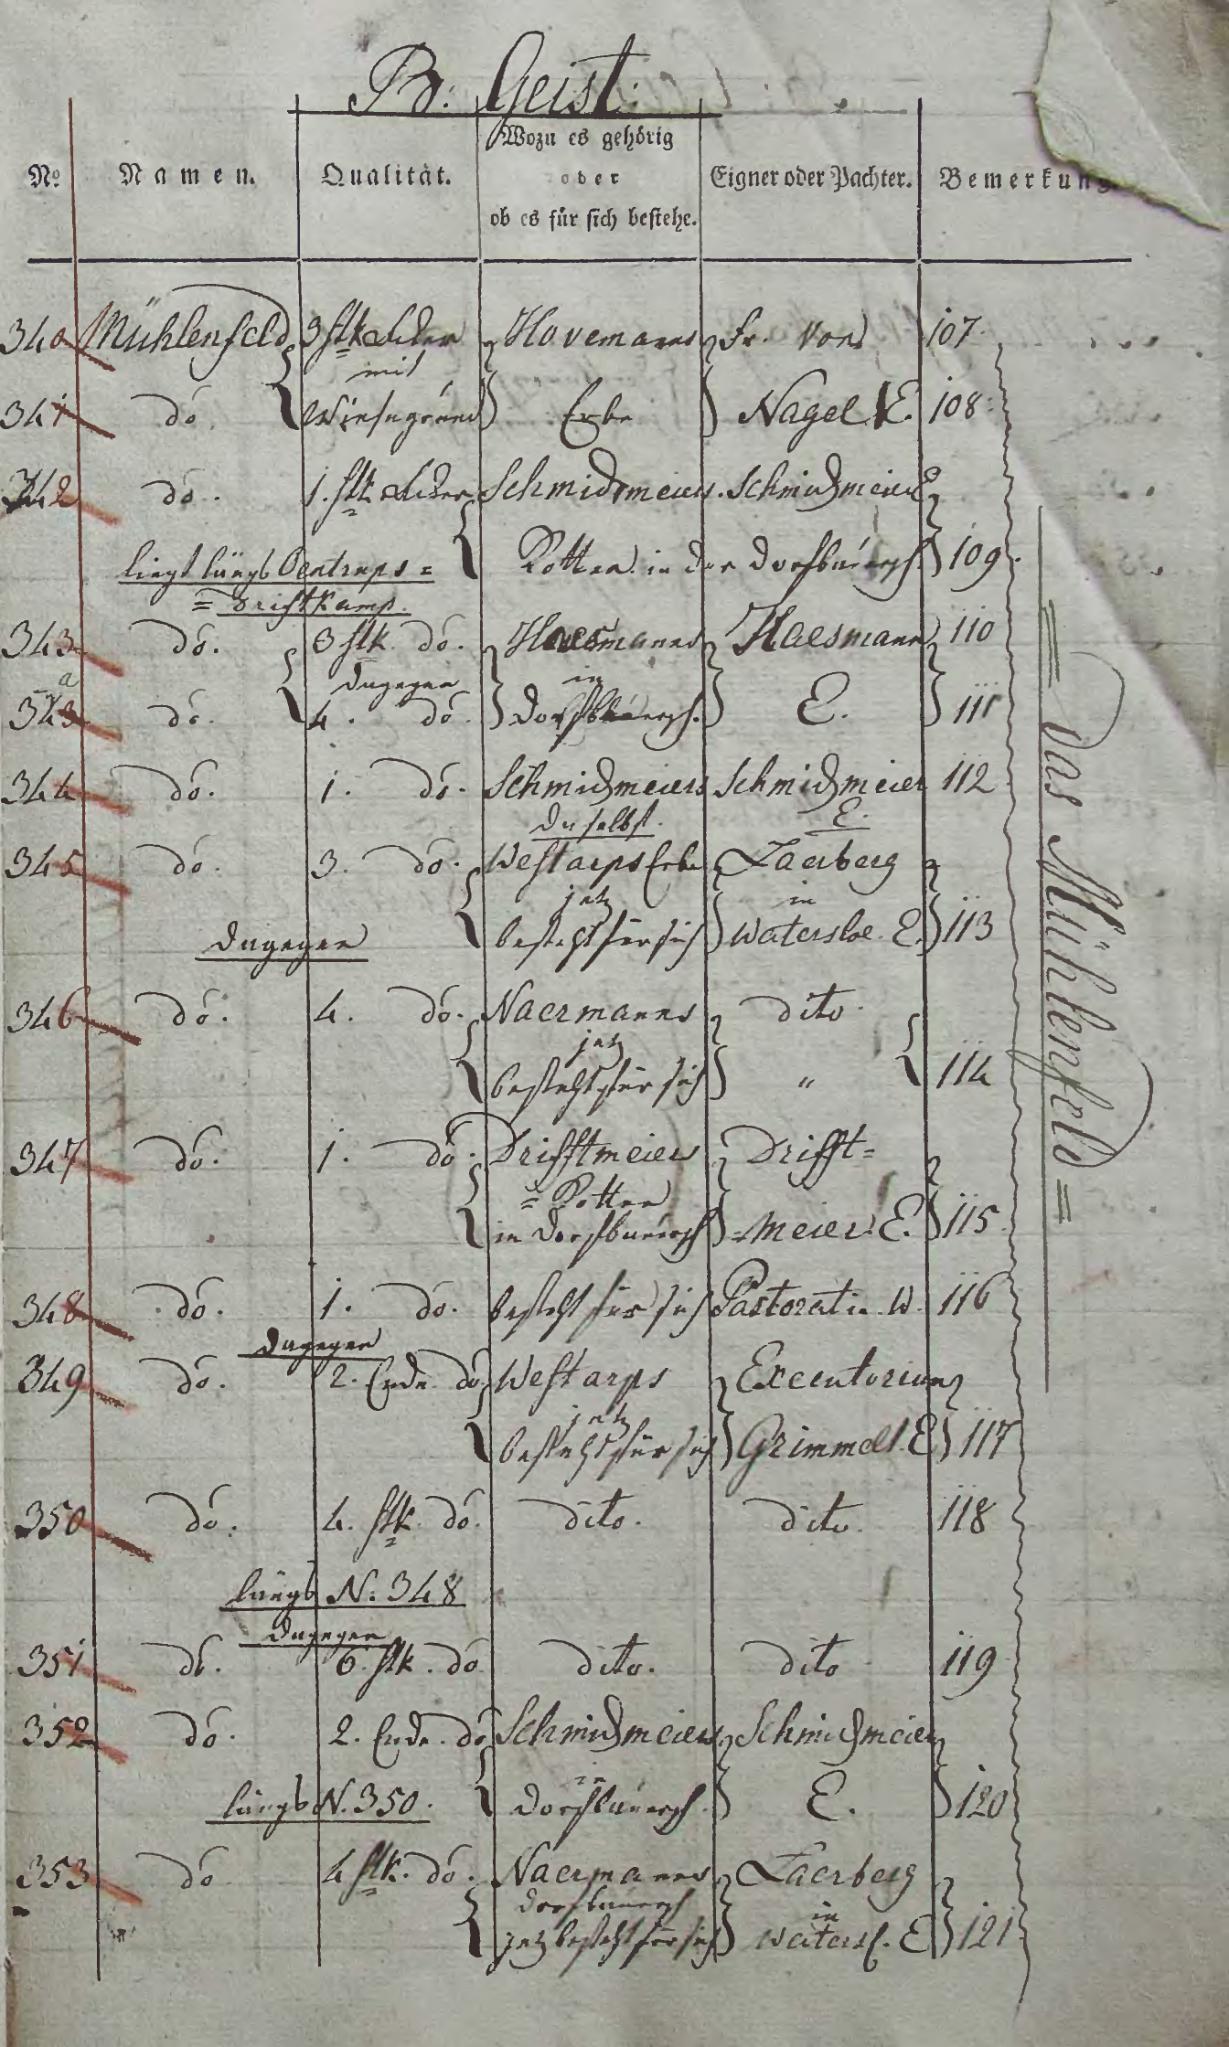 B. Geist.
No. Namen. Qualität. Wozu es gehörig oder ob es für sich bestehe. Eigner oder Pachter. Bemerkung
340 Mühlenfeld 3 stk Acker Hovemanns Fr. von 107.
mit
341 do. Wiesengrund Erbe Nagel E. 108.
342 do. 1. stk Acker Schmidtmeiers. Schmidtmeier E
liegt längs Oentrups= Kotten in der Dorfbauersch. 109.
=Driftkamp.
343 do. 3 stk. do. Haesmanns Haesmann 110
dagegen in
343 a do. 4. do. Dorfbauersch. E. 111
344 do. 1. do. Schmidtmeiers Schmidtmeier 112
daselbst. E.
345 do. 3. do. Westarps Erbe Laerberg
jetz in
dagegen besteht für sich Watersloe. E. 113
346 do. 4. do. Naermanns dito.
jetz
besteht für sich " 114
347 do. 1. do. Drifftmeiers Drifft=
=Kotten
in Dorfbauersch =meier. E. 115.
348 do. 1. do. besteht für sich Pastorat in W. 116
dagegen
349 do. 2. Ende do Westarps Executorium
jetz
besteht für sich Grimmelt. E 117
350 do. 4. stk. do. dito. dito. 118
längs N. 348
dagegen
351 do. 6. stk. do dito. dito 119
352 do. 2. Ende. do Schmidtmeiers Schmidtmeier
in
längs N. 350. Dorfbauersch. E. 120
353 do 4 stk. do. Naermanns Laerberg
Dorfbauersch in
jetz besteht für sich Watersl. E 121.
= Das Mühlenfeld =